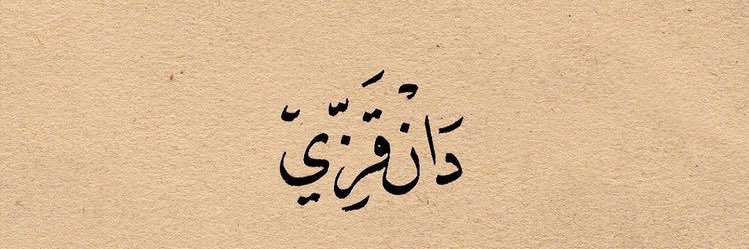 دَانْ قَزِّيْ